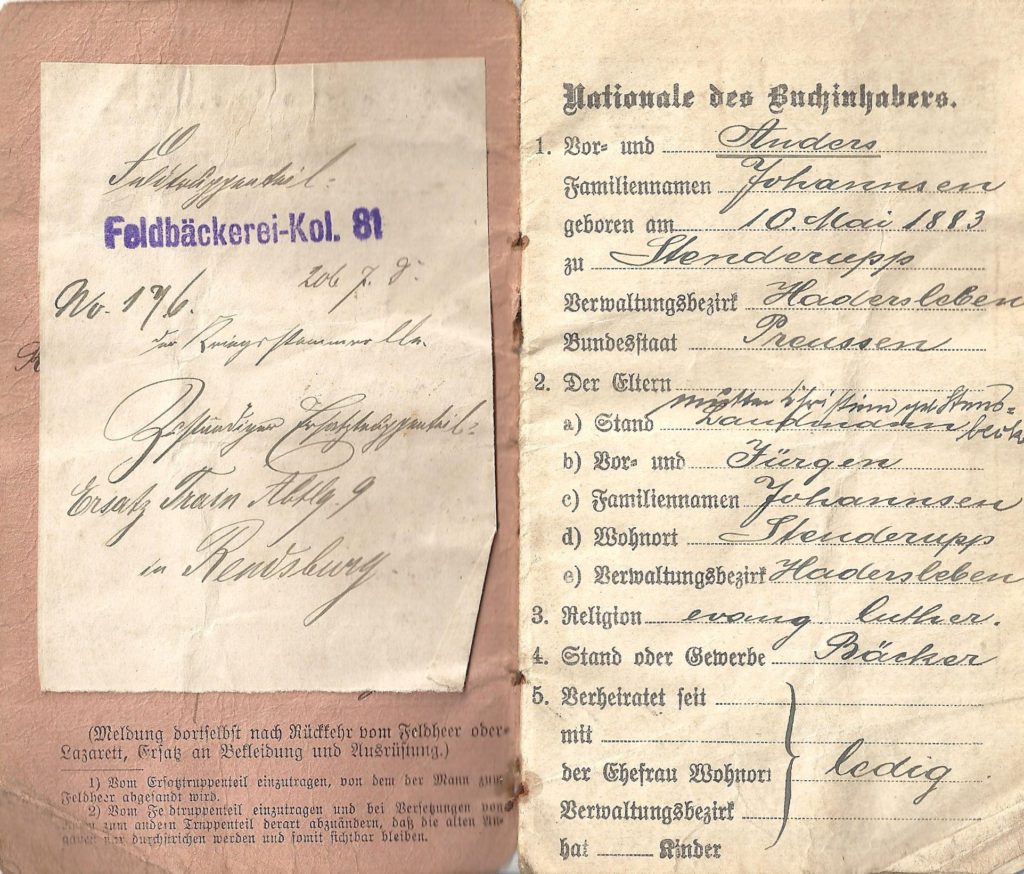 Feldtruppenteil:
Feldbäckerei-Kol. 81
No. 176.
der Kriegsstammrolle.
Zuständiger Ersatztruppenteil:
Ersatz Train Abtlg. 9
in Rendsburg.
(Meldung dortselbst nach Rückkehr vom Feldheer oder
Lazarett, Ersatz an Bekleidung und Ausrüstung.)
1) Vom Ersatztruppenteil einzutragen, von dem der Mann zum
Feldheer abgesandt wird.
2) Vom Feldtruppenteil einzutragen und bei Versetzungen von
zum andern Truppenteil derart abzuändern, daß die alten An-
gaben nur durchstrichen werden und somit sichtbar bleiben.
Nationale des Buchinhabers.
1. Vor- und Anders
Familiennamen Johannsen
geboren am 10. Mai 1883
zu Stenderupp
Verwaltungsbezirk Hadersleben
Bundesstaat Preussen
2. Der Eltern
Mutter Christine geb.
a) Stand Landmann
b) Vor- und Jürgen
c) Familiennamen Johannsen
d) Wohnort Stenderupp
e) Verwaltungsbezirk Hadersleben
3. Religion evang luther.
4. Stand oder Gewerbe Bäcker
5. Verheiratet seit
mit
der Ehefrau Wohnort ledig
Verwaltungsbezirk
hat Kinder